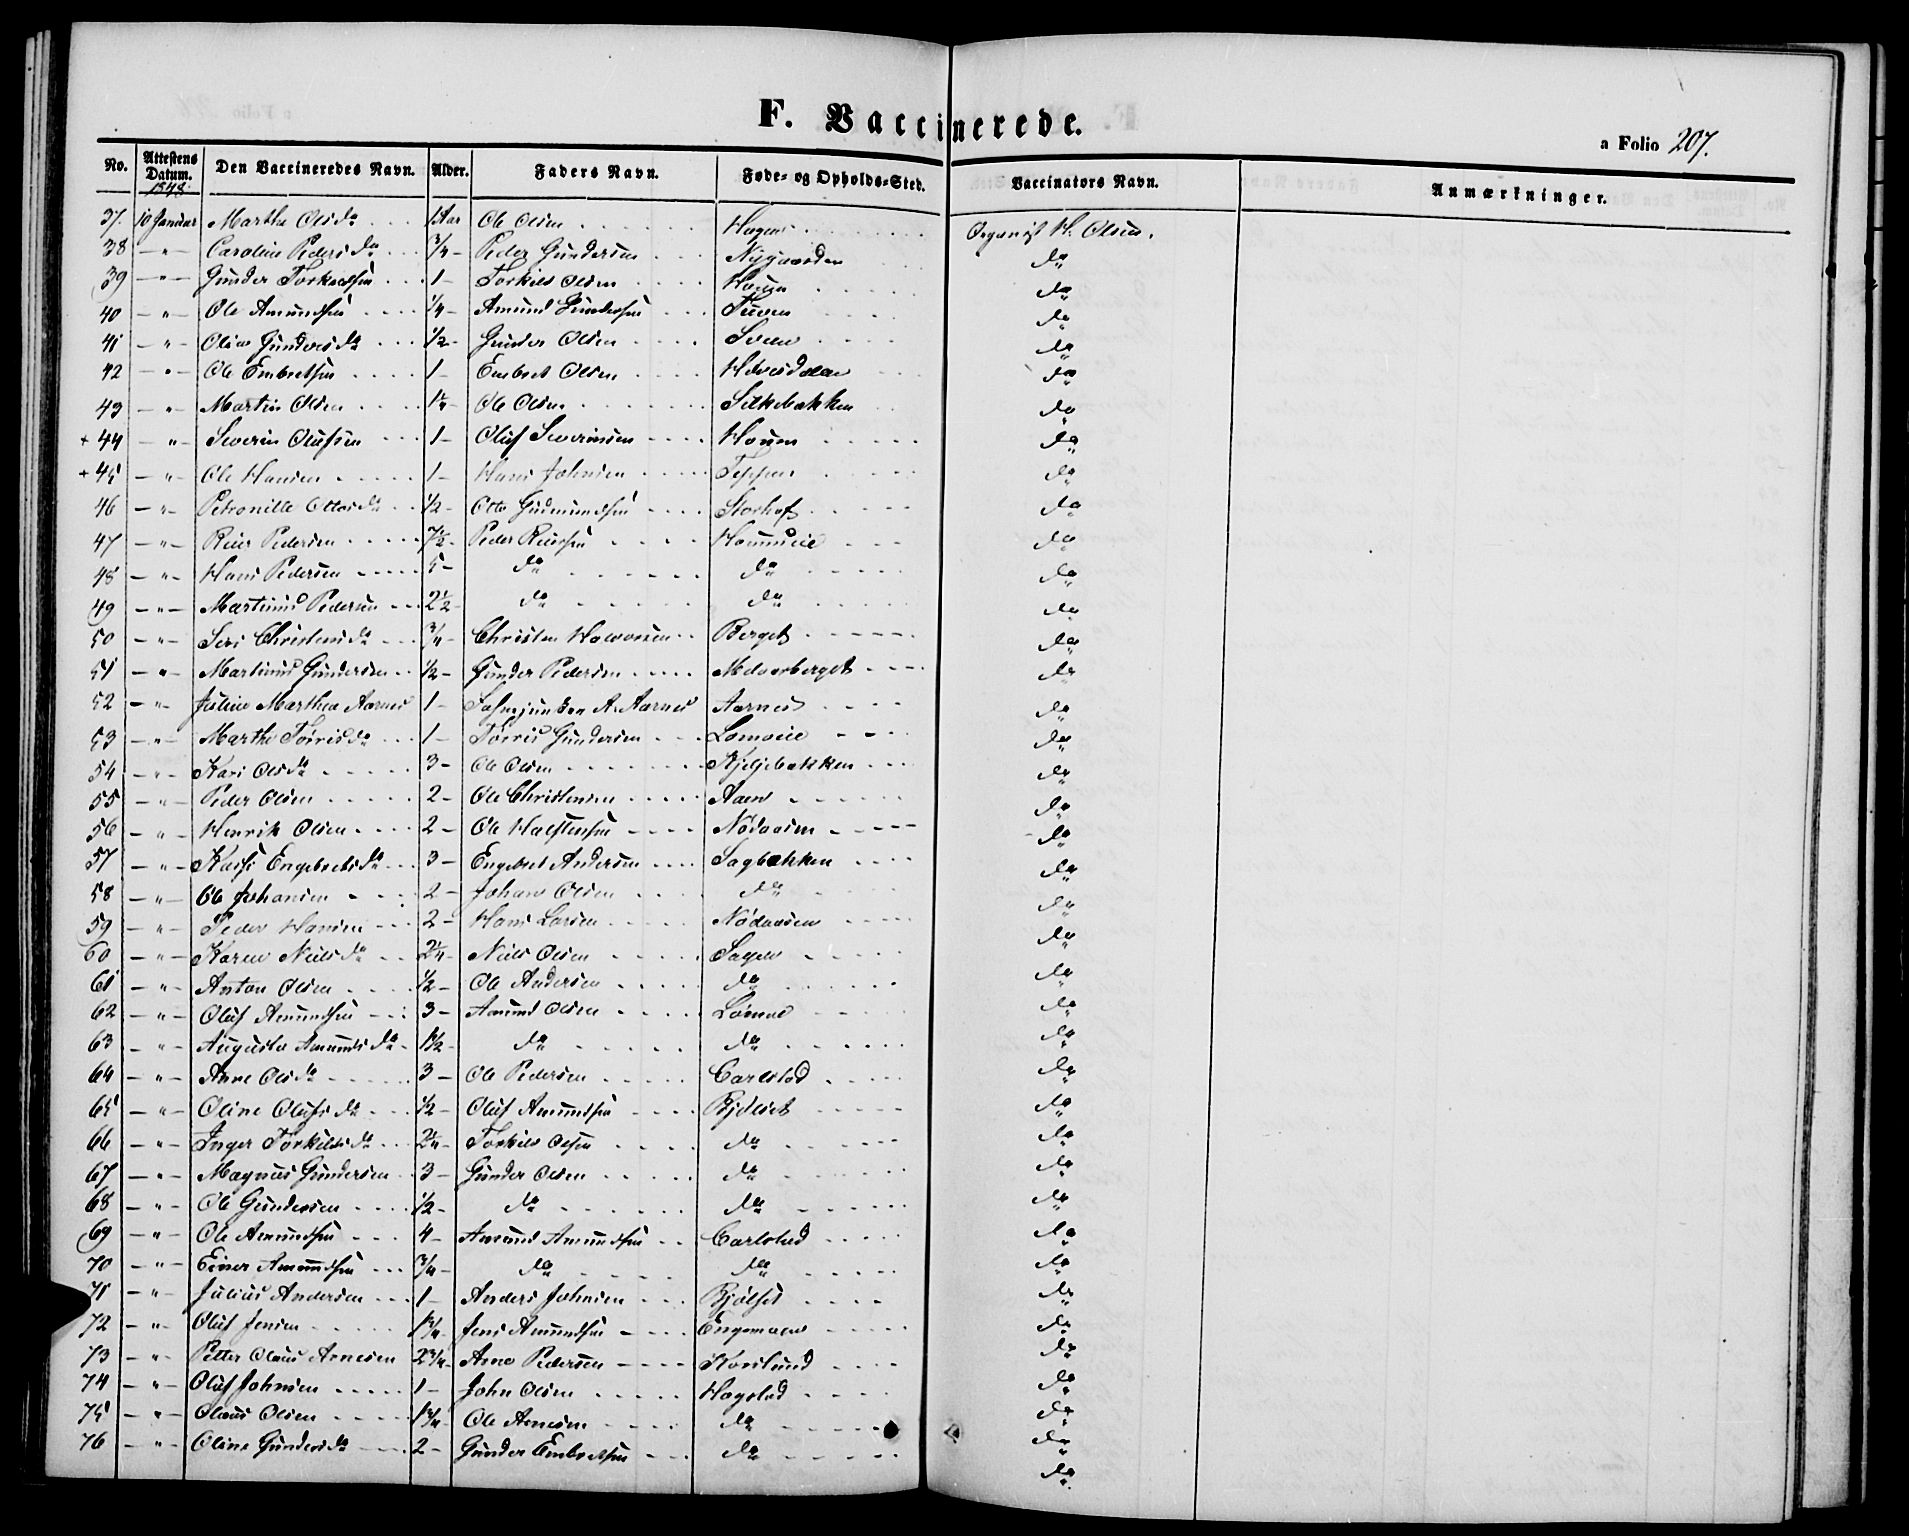 F. Vaccinerede.
a Folio 207.
No. Attestens Datum. Den Vaccineredes Navn. Alder. Faders Navn. Føde- og Opholds-Sted. Vaccinators Navn. Anmærkninger.
1848.
37. 10 Januar Marthe Olsdr 1 Aar Ole Olsen Hagen Organist H. Olsen.
38 -"- Caroline Pedersdr 3/4 - Peder Gundersen Nygaarden do
39 -"- Gunder Torkildsen 1 - Torkild Olsen Houen do
40 -"- Ole Amundsen 1/4 - Amund Gundersen do
41 -"- Oline Gundersdr 1/2 - Gunder Olsen Sveen do
42 -"- Ole Embretsen 1 - Embret Olsen do
43 -"- Martin Olsen 1 1/4 - Ole Olsen Silkebakken do
+ 44 -"- Severin Olufsen 1 - Oluf Severinsen Houen do
+ 45 -"- Ole Hansen 1 - Hans Johnsen Teppen do
46 -"- Petronille Ottosdr 1/2 - Otto Gudmundsen Storhof do
47 -"- Reier Pedersen 7 1/2 - Peder Reiersen do
48 -"- Hans Pedersen 5 - do do do
49 -"- Martinus Pedersen 2 1/2 - do do do
50 -"- Siri Christensdr 3/4 - Christen Halvorsen Berget do
51 -"- Martinus Gundersen 1/2 - Gunder Pedersen do
52 -"- Juline Marthea Aarnes 1 - Fahnejunker A. Aarnes Aarnes do
53 -"- Marthe Torrisdr 1 - Torris Gundersen Lomoie do
54 -"- Kari Olsdr 3 - Ole Olsen do
55 -"- Peder Olsen 2 - Ole Christensen Aaen do
56 -"- Henrik Olsen 2 - Ole Halstensen Nødaasen do
57 -"- Kaisi Engebretsdr 3 - Engebret Andersen Sagbakken do
58 -"- Ole Johansen 2 - Johan Olsen do do
59 -"- Peder Hansen 2 - Hans Larsen Nødaasen do
60 -"- Karen Nielsdr 2 1/4 - Niels Olsen Sagen do
61 -"- Anton Olsen 1/2 - Ole Andersen do do
62 -"- Oluf Amundsen 3 - Amund Olsen Lømoe do
63 -"- Augusta Amundsdr 1 1/2 - do do do
64 -"- Anne Olsdr 3 - Ole Pedersen Carlstad do
65 -"- Oline Olufsdr 1/2 - Oluf Amundsen Bjølset do
66 -"- Inger Torkildsdr 2 1/4 - Torkild Olsen do do
67 -"- Magnus Gundersen 3 - Gunder Olsen do do
68 -"- Ole Gundersen 1/2 - do do do
69 -"- Ole Amundsen 4 - Amund Amundsen Carlstad do
70 -"- Einer Amundsen 3/4 - do do do
71 -"- Julius Andersen 1 - Anders Johnsen Bjølset do
72 -"- Oluf Jensen 1 3/4 - Jens Amundsen Engemoen do
73 -"- Petter Olaus Arnesen 2 3/4 - Arne Pedersen Korslund do
74 -"- Oluf Johnsen 1 - John Olsen Hagstad do
75 -"- Olaus Olsen 1 3/4 - Ole Arnesen do do
76 -"- Oline Gundersdr 2 - Gunder Embretsen do do
do